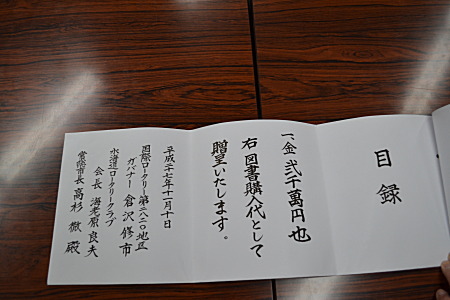 目録
一、金 弐千萬円也
右 図書購入代として
贈呈いたします。
平成二十七年十一月十日
国際ロータリー第二八二〇地区
ガバナー 倉沢修市
水海道ロータリークラブ
会長 海老原良夫
常総市長 高杉 徹 殿